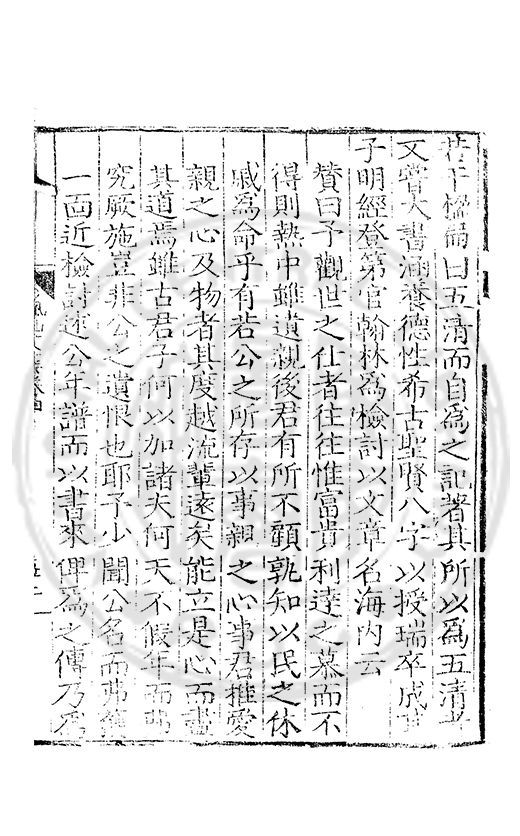 若干楹扁曰五清而自為之記著其所以為五清者
又嘗大書涵養德性希古聖賢八字以授瑞卒成其
子明經登第官翰林為檢討以文章名海內云
贊曰予觀世之仕者往往惟富貴利達之慕而不
得則熱中雖遺親後君有所不顧孰知以民之休
戚為命乎有若公之所存以事親之心事君推愛
親之心及物者其度越流輩遠矣能立是心而盡
其道焉雖古君子何以加諸夫何天不假年而弗
究厥施豈非公之遺恨也耶予少聞公名而弗獲
一面近檢討述公年譜而以書來俾為之傳乃為